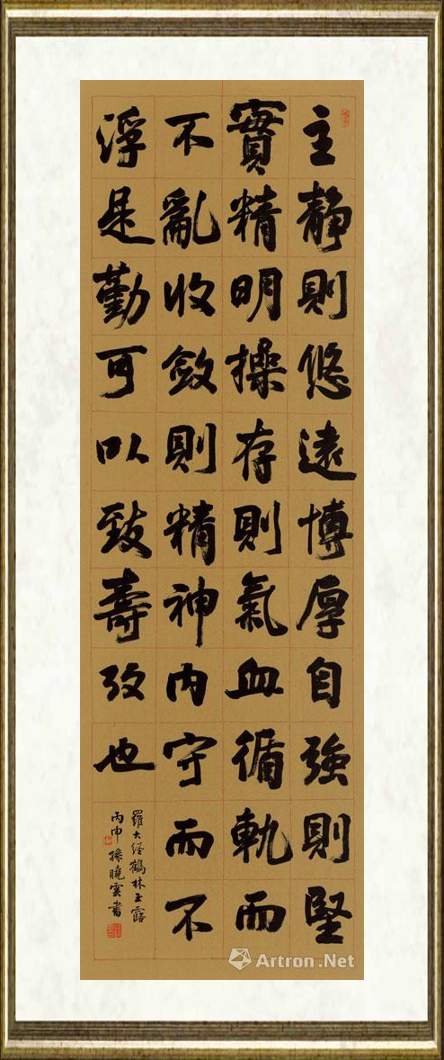 主靜則悠遠博厚自強則堅
實精明操存則氣血循軌而
不亂收斂則精神內守而不
浮是勤可以致壽攷也
羅大经鶴林玉露
丙申 操曉雲書
Artron.Net